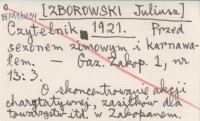 [ZBOROWSKI Juliusz]
Czytelnik. 1921. Przed
sezonem zimowym i karnawa-
łem. — Gaz. Zakop. 1, nr
13: 3.
O skoncentrowanie akcji
charytatywnej, zasiłków dla
towarzystw itd. w Zakopanem.